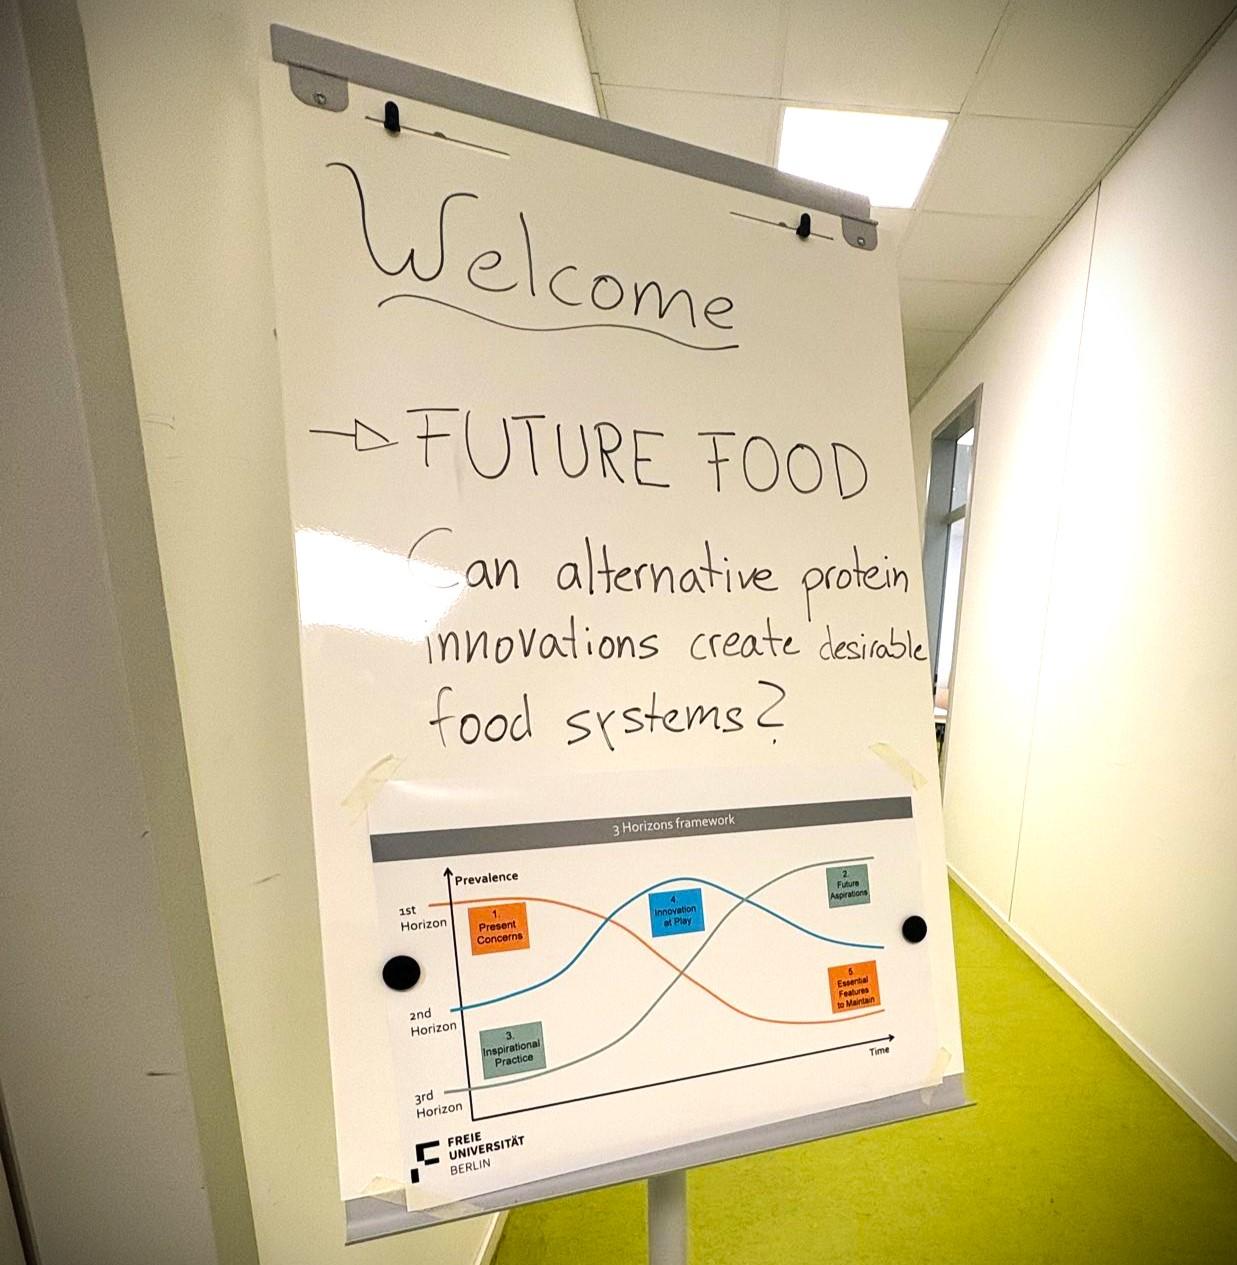 Welcome
FUTURE FOOD
Can alternative protein
innovations create desirable
food systems?
3 Horizons framework
Prevalence
1st
Horizon
1.
Present
Concerns
4.
Innovation
at Play
2.
Future
Aspirations
2nd
Horizon
3.
Inspirational
Practice
5.
Essential
Features
to Maintain
Time
3rd
Horizon
FREIE
UNIVERSITÄT
BERLIN